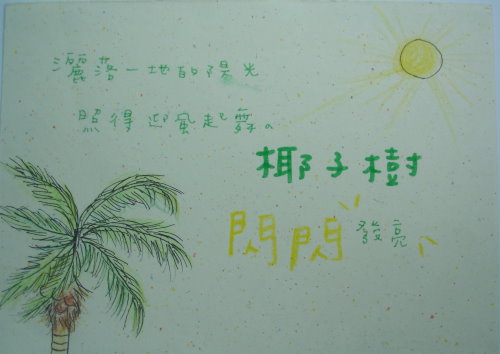 灑落一地的陽光
照得迎風起舞。
椰子樹
閃閃發亮